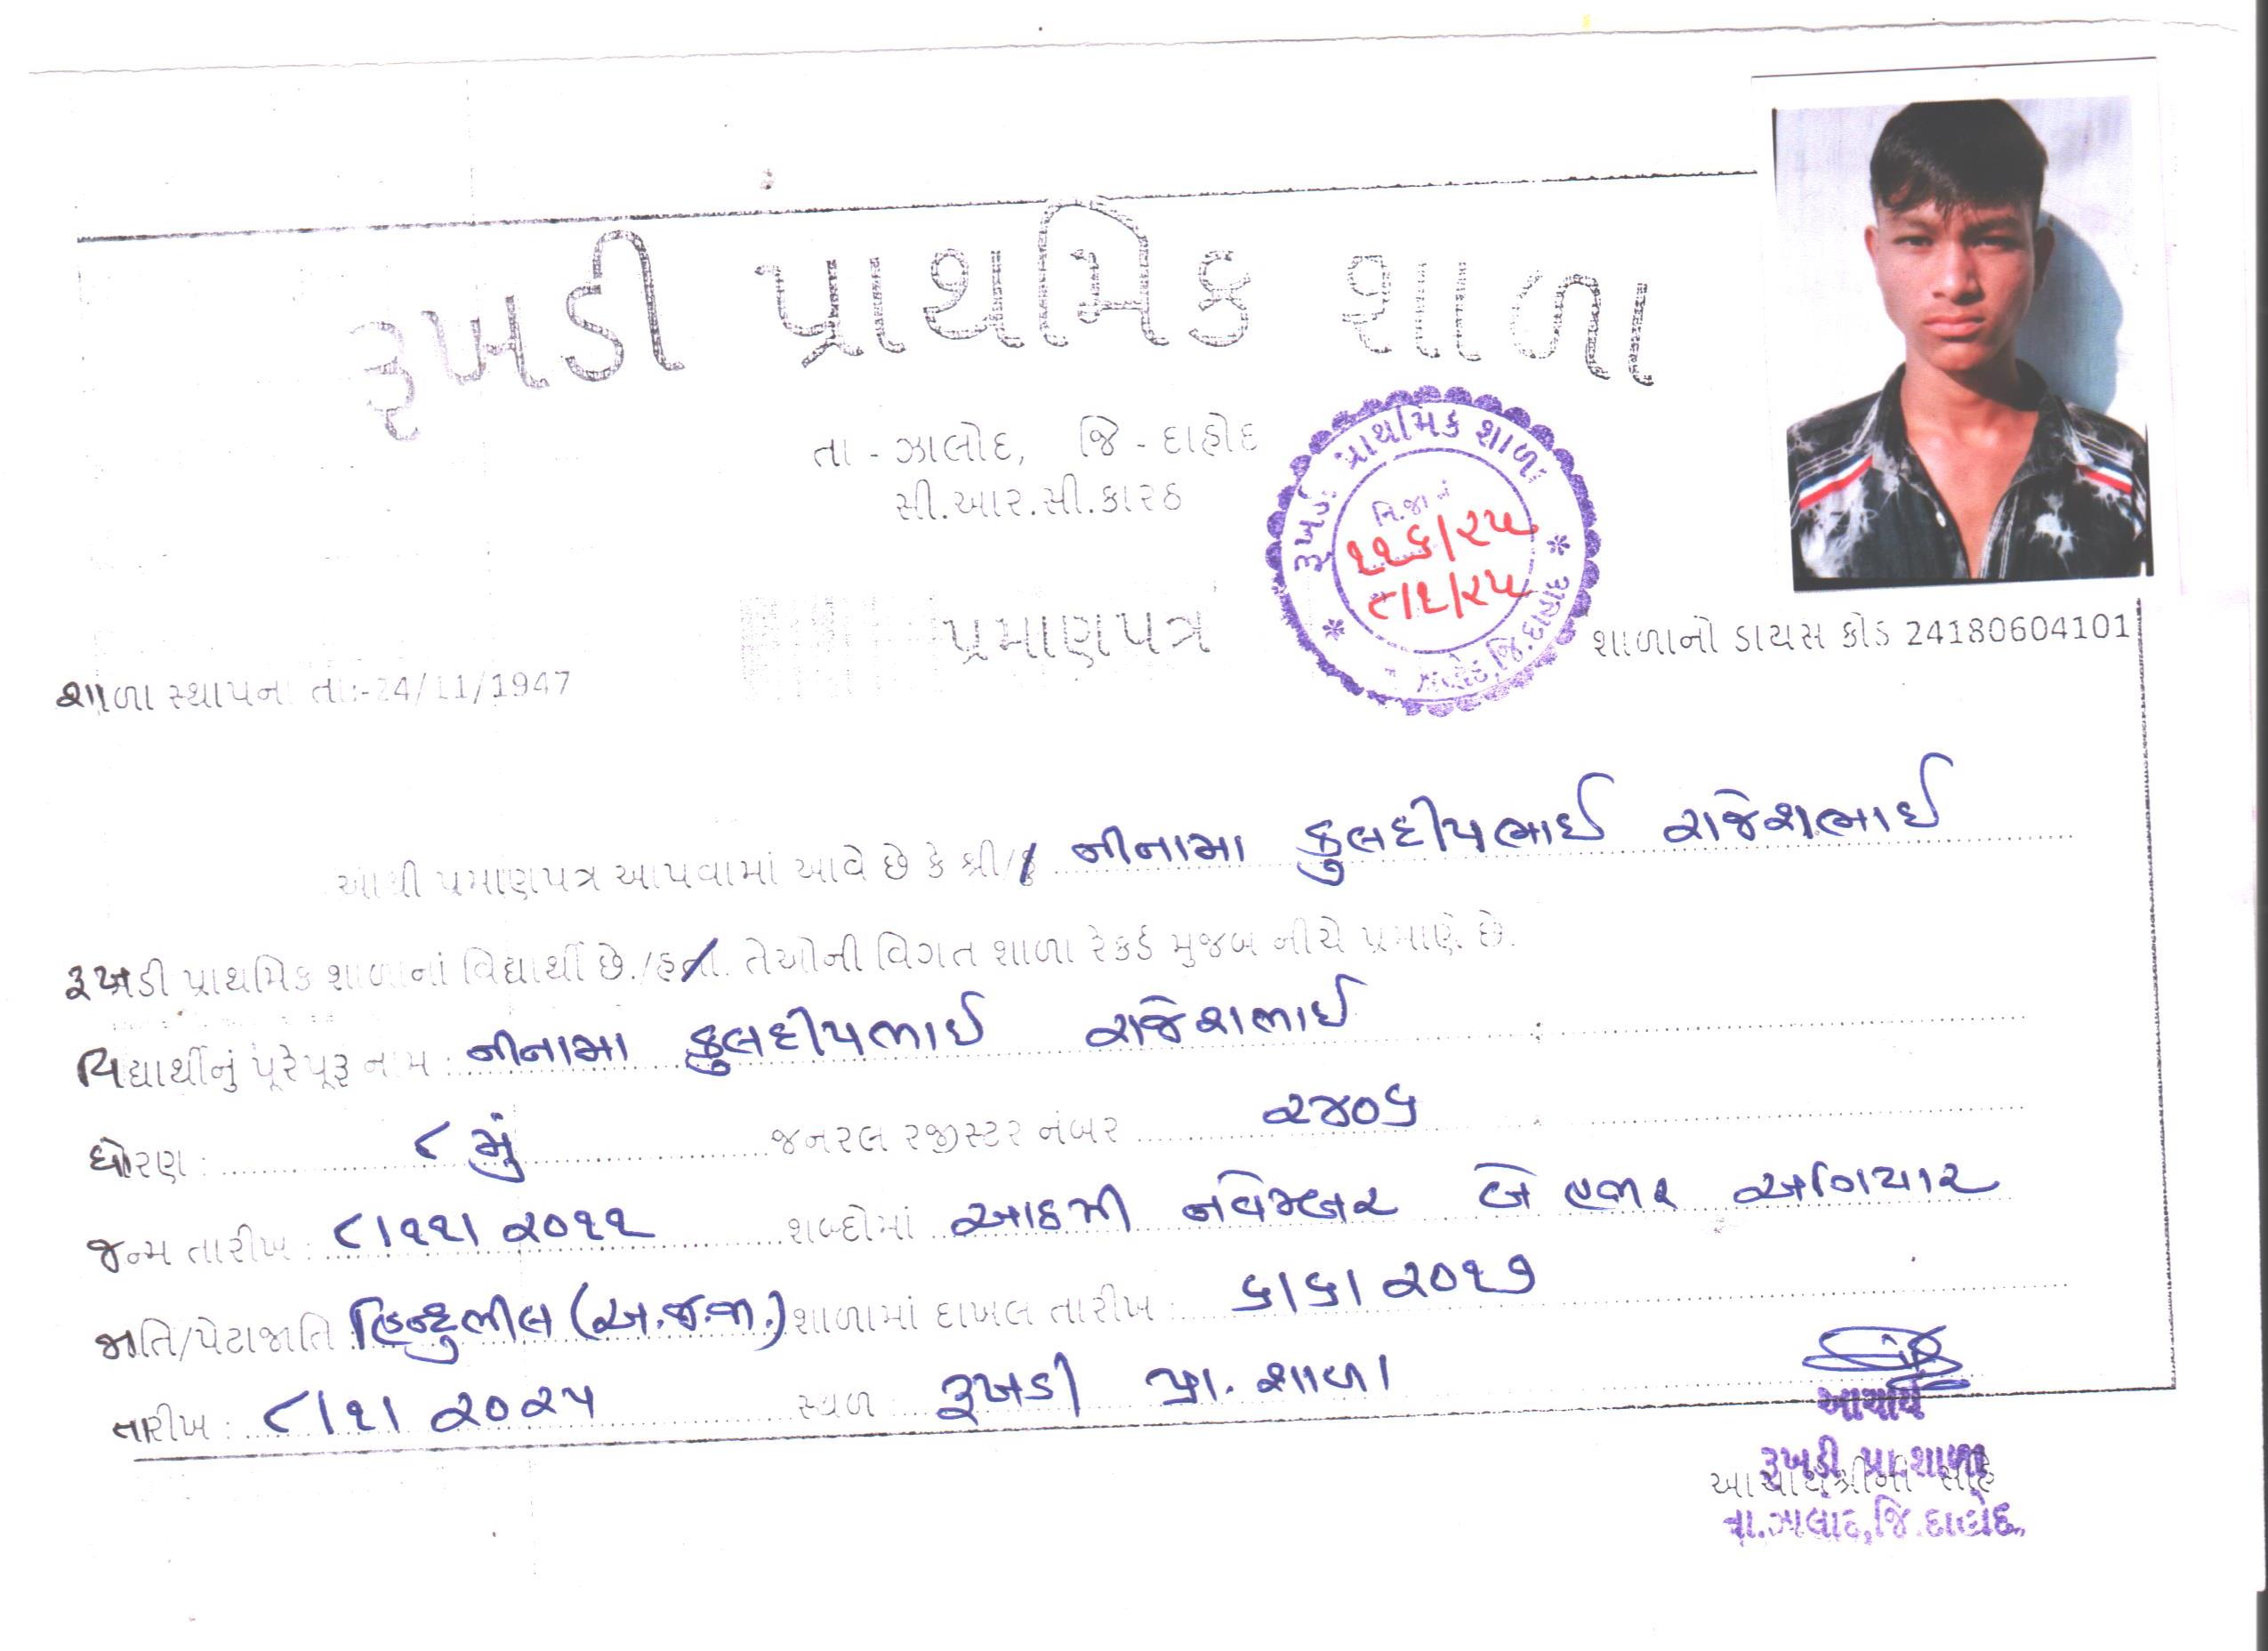 રૂખડી પ્રાથમિક શાળા
તા - ઝાલોદ, જિ - દાહોદ
સી.આર.સી.કારઠ
રૂખડી પ્રાથમિક શાળા
નિ.જા નં
૧૧૬/૨૫
૮/૧/૨૫
જિ.દાહોદ
પ્રમાણપત્ર
શાળાનો ડાયસ કોડ 24180604101
શાળા સ્થાપના તા:-24/11/1947
આથી પ્રમાણપત્ર આપવામાં આવે છે કે શ્રી/કુ નીનામા કુલદીપભાઈ રાજેશભાઈ
રૂખડી પ્રાથમિક શાળાનાં વિદ્યાર્થી છે./હતા. તેઓની વિગત શાળા રેકર્ડ મુજબ નીચે પ્રમાણે છે.
વિદ્યાર્થીનું પૂરેપૂરૂ નામ : નીનામા કુલદીપભાઈ રાજેશભાઈ
ધોરણ : ૮ મું જનરલ રજીસ્ટર નંબર ૨૪૦૬
જન્મ તારીખ : ૮/૧૧/૨૦૧૧ શબ્દોમાં આઠમી નવેમ્બર બે હજાર અગિયાર
જાતિ/પેટાજાતિ હિન્દુભીલ (અ.જ.જા.) શાળામાં દાખલ તારીખ : ૬/૬/૨૦૧૭
તારીખ : ૮/૧/૨૦૨૫ સ્થળ : રૂખડી પ્રા. શાળા
આચાર્ય
રૂખડી પ્રા.શાળા
આચાર્યશ્રીની સહિ
તા.ઝાલોદ,જિ.દાહોદ.